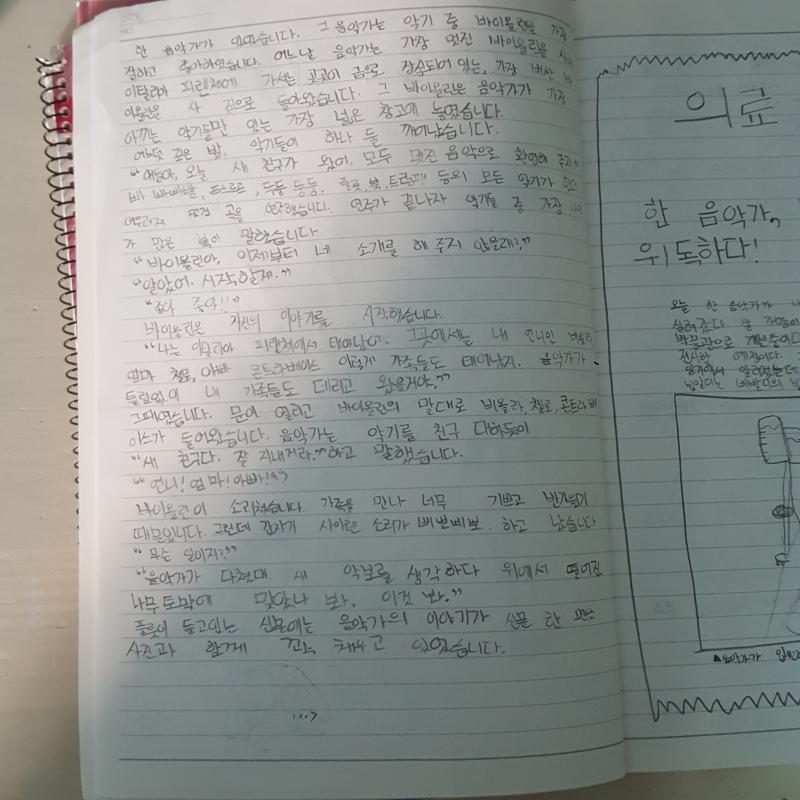 한 음악가가 있었습니다. 그 음악가는 악기 중 바이올린을 가장
잘하고 좋아하였습니다. 어느날 음악가는 가장 멋진 바이올린을
이탈리아 피렌체에 가서는 곳곳이 금으로 장식되어 있는, 가장 비싼 바
이올린을 사 집으로 돌아왔습니다. 그 바이올린은 음악가가 가장
아끼는 악기들만 있는 가장 넓은 창고에 놓였습니다.
어느덧 깊은 밤. 악기들이 하나 둘 깨어났습니다.
“얘들아, 오늘 새 친구가 왔어. 모두 멋진 음악으로 환영해 주자.”
빠 빠빠빰, 드르르르, 두둥 둥둥. 플룻, 북, 트럼펫 등의 모든 악기가
어우러져 멋진 곡을 연주했습니다. 연주가 끝나자 악기들 중 가장 나이
가 많은 북이 말했습니다
“바이올린아, 이제부터 네 소개를 해 주지 않을래?”
“알았어. 시작할게.”
“좋아 좋아!!”
바이올린은 자신의 이야기를 시작했습니다.
“나는 이탈리아 피렌체에서 태어났어. 그곳에서는 내 언니인 비올라,
엄마 첼로, 아빠 콘트라베이스 이렇게 가족들도 태어났지. 음악가가
틀림없이 내 가족들도 데리고 왔을거야.”
그때였습니다. 문이 열리고 바이올린의 말대로 비올라, 첼로, 콘트라베
이스가 들어왔습니다. 음악가는 악기를 친구 대하듯이
“새 친구다. 잘 지내거라.”하고 말했습니다.
“언니! 엄마! 아빠!”
바이올린이 소리쳤습니다. 가족을 만나 너무 기쁘고 반가웠기
때문입니다. 그런데 갑자기 사이렌 소리가 삐뽀삐뽀. 하고 났습니다
“무슨 일이지?”
“음악가가 다쳤대. 새 악보를 생각하다 위에서 떨어진
나무토막에 맞았나 봐. 이것 봐.”
플룻이 들고있는 신문에는 음악가의 이야기가 신문 한
사진과 함께 채우고 있었습니다.
의료
한 음악가,
위독하다!
오늘 한 음악가가
실려갔다.
박물관으로
전시할 예정이다.
▲음악가가